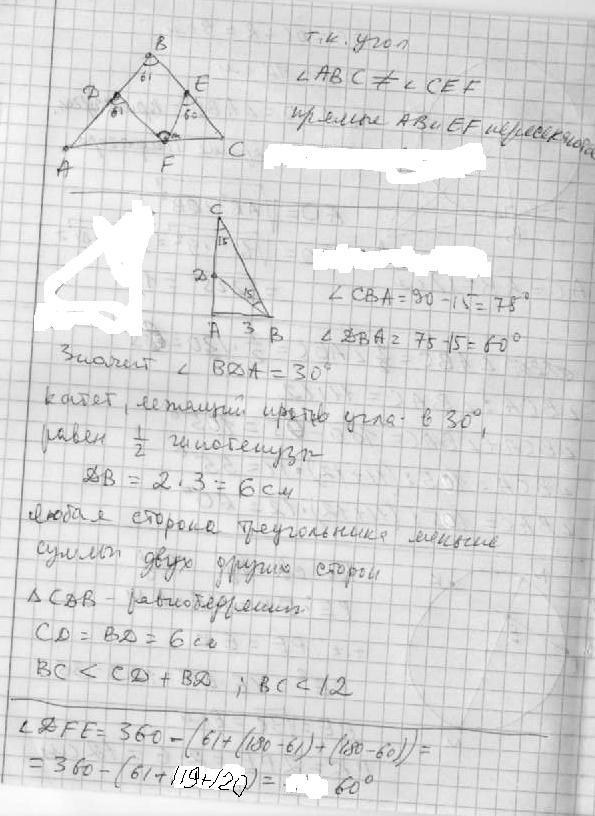 B
D
E
61
61
60
A
F
C
т.к. угол
∠ABC ≠ ∠CEF
прямые AB и EF пересекутся
C
15
D
15
A
3
B
∠CBA = 90 - 15 = 75°
∠DBA = 75 - 15 = 60°
Значит ∠ BDA = 30°
катет, лежащий против угла в 30°,
равен 1/2 гипотенузы
DB = 2 · 3 = 6 см
любая сторона треугольника меньше
суммы двух других сторон
Δ CDB - равнобедренный
CD = BD = 6 см
BC < CD + BD ; BC < 12
∠DFE = 360 - (61 + (180 - 61) + (180 - 60)) =
= 360 - (61 + 119 + 120) = 60°